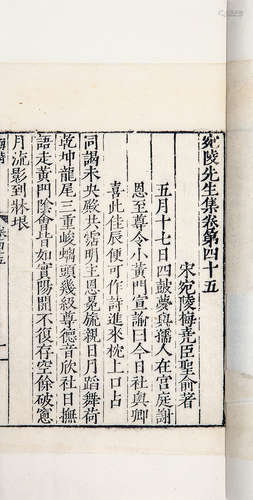 宛陵先生集卷第四十五
宋宛陵梅堯臣聖俞著
五月十七日四鼓夢與孺人在宮庭謝
恩至尊令小黃門宣諭曰今日社與卿
喜此佳辰便可作詩進來枕上口占
同謁未央殿共霑明主恩冕旒親日月蹈舞荷
乾坤龍尾三重峻螭頭幾級尊德音欣社日撫
語走黃門陰會昏如實陽開不復存空餘破窻
月流影到牀垠